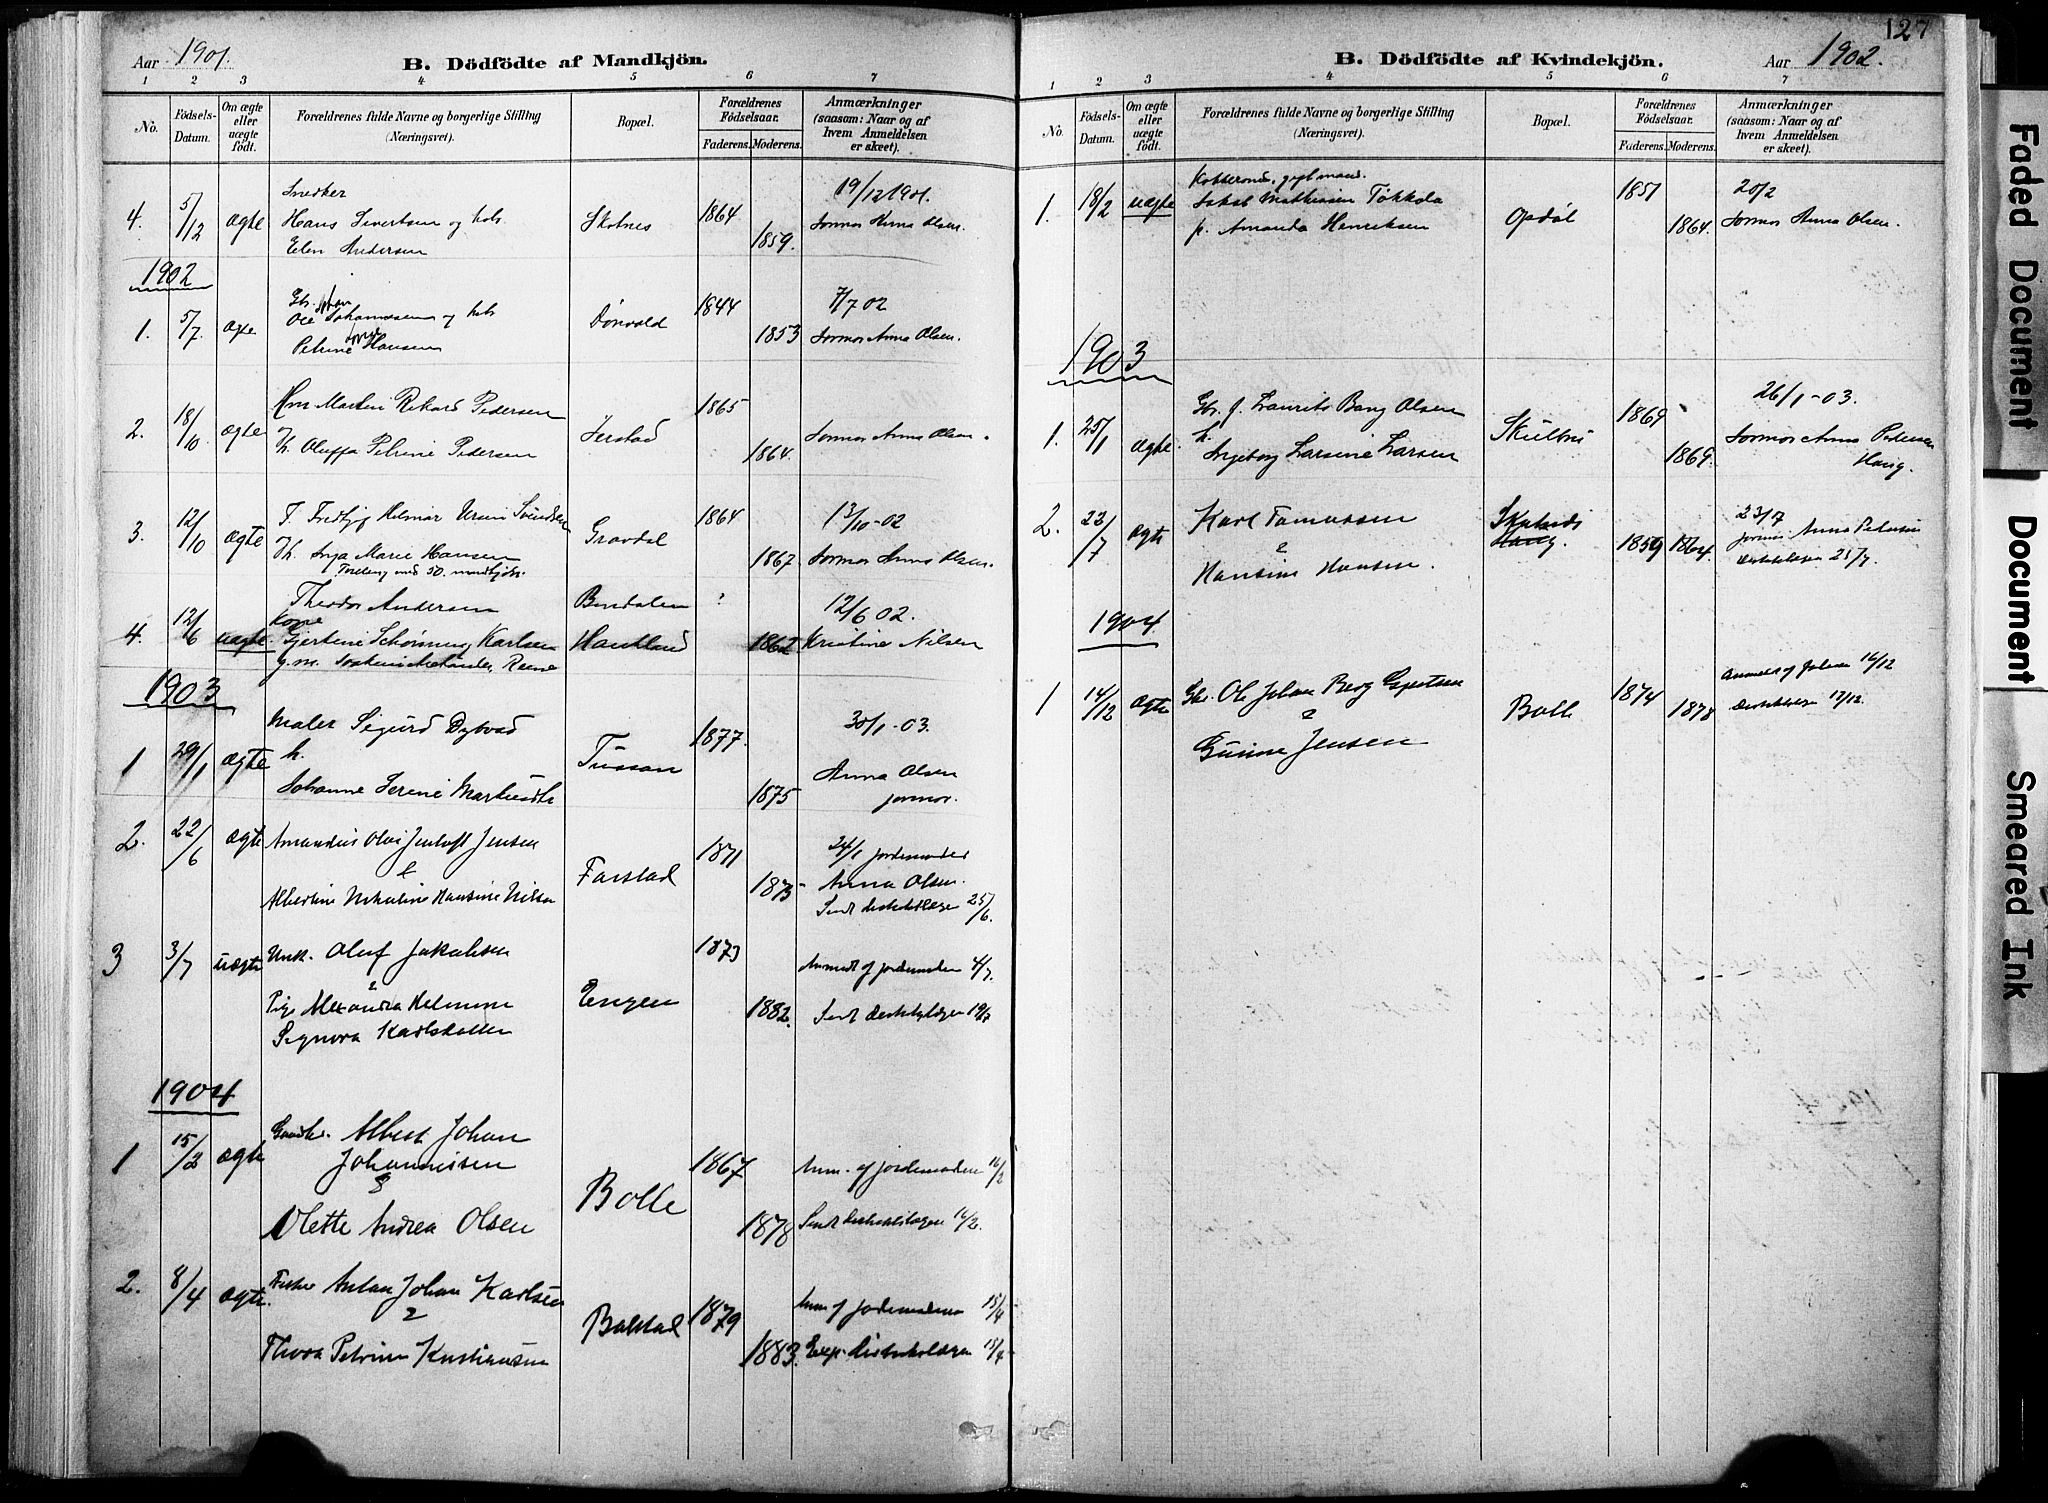 127
Aar 1901.
B. Dödfödte af Mandkjön.
1 2 3 4 5 6 7
No.
Födsels-
Datum.
Om ægte
eller
uægte
födt.
Forældrenes fulde Navne og borgerlige Stilling
(Næringsvei).
Bopæl.
Forældrenes
Födselsaar.
Faderens. Moderens.
Anmærkninger
(saasom: Naar og af
hvem Anmeldelsen
er skeet).
4. 5/12 ægte
Snedker
Hans Sivertsen og hstr.
Elen Andersen
Skotnes
1864 1859.
19/12 1901.
Jormor Anna Olsen.
1902
1. 5/7. ægte
Gbr.
Ole Johannessen og hstr
Petrine Hansen
1844 1853
7/7 02
Jormor Anna Olsen.
2. 18/10. ægte
Martin Rikard Pedersen
Oluffa Petrine Pedersen
Jerstad
1865 1864.
Jormor Anna Olsen.
3. 12/10 ægte
F. Fredtjof Helmar Svendsen
Inga Marie Hansen
Gravdal
1864 1867.
13/10-02
Jormor Anna Olsen.
4. 12/6 uægte.
Theodor Andersen
Kone
Gjertine Schønning Karlsen
Bendalen ?
Haukland
1862
12/6 02.
Kristine Nilsen
1903
1 29/1 ægte
Maler Sigurd Dybvad
h.
Johanne Serine
1877. 1875
30/1-03.
Anna Olsen
jormor.
2. 22/6 ægte
Amandus Olai Jentoft Jensen
&
Albertine Nikoline Hansine Nilsen
Farstad
1871 1875
24/6 jordemoder
Anna Olsen.
Sendt distriktslæge 25/6.
3 3/7 uægte
Unk. Oluf Jakobsen
2
Pige Alexandra Helmine
Signora
Engen
1873 1882.
Anmeldt af jordemoderen 4/7.
Sendt distriktslægen
1904
1 15/2 ægte
Albert Johan
Johannesen
&
Olette Andrea Olsen
Bolle
1867 1878
Anm. af jordemoderen 16/2
Sendt distriktslægen 16/2.
2. 8/4 ægte.
Fisker Anton Johan Karlsen
2
Thora Petrine Kristiansen
Balstad
1879 1883.
Anm af jordemoderen 15/4
Exp. distriktslægen 15/4
B. Dödfödte af Kvindekjön.
Aar 1902.
1 2 3 4 5 6 7
No.
Födsels-
Datum.
Om ægte
eller
uægte
födt.
Forældrenes fulde Navne og borgerlige Stilling
(Næringsvei).
Bopæl.
Forældrenes
Födselsaar.
Faderens. Moderens.
Anmærkninger
(saasom: Naar og af
hvem Anmeldelsen
er skeet).
1. 18/2 uægte
Jakob Mathiasen Tokkola
p. Amanda Henriksen
Opdøl
1851 1864.
20/2
Jormor Anna Olsen.
1903
1. 25/1 ægte.
Gbr. f. Laurits Bang Olsen
h.
Ingeborg Larsine Larsen
1869 1869.
26/1-03.
Jormor Anna Pedersen
Haug.
2. 22/7 ægte
Karl Tomassen
2
Hansine Hansen.
Haug.
1859 1864.
23/7
jormor Anna Petersen
distriktslægen 25/7.
1904
1 14/12 ægte
Gbr. Ole Johan Berg
2
Gunna Jensen
Bolle
1874 1878
Anmeldt af Jordm 16/12
distriktslæge 17/12.
Faded Document
Document
Document
Smeared Ink